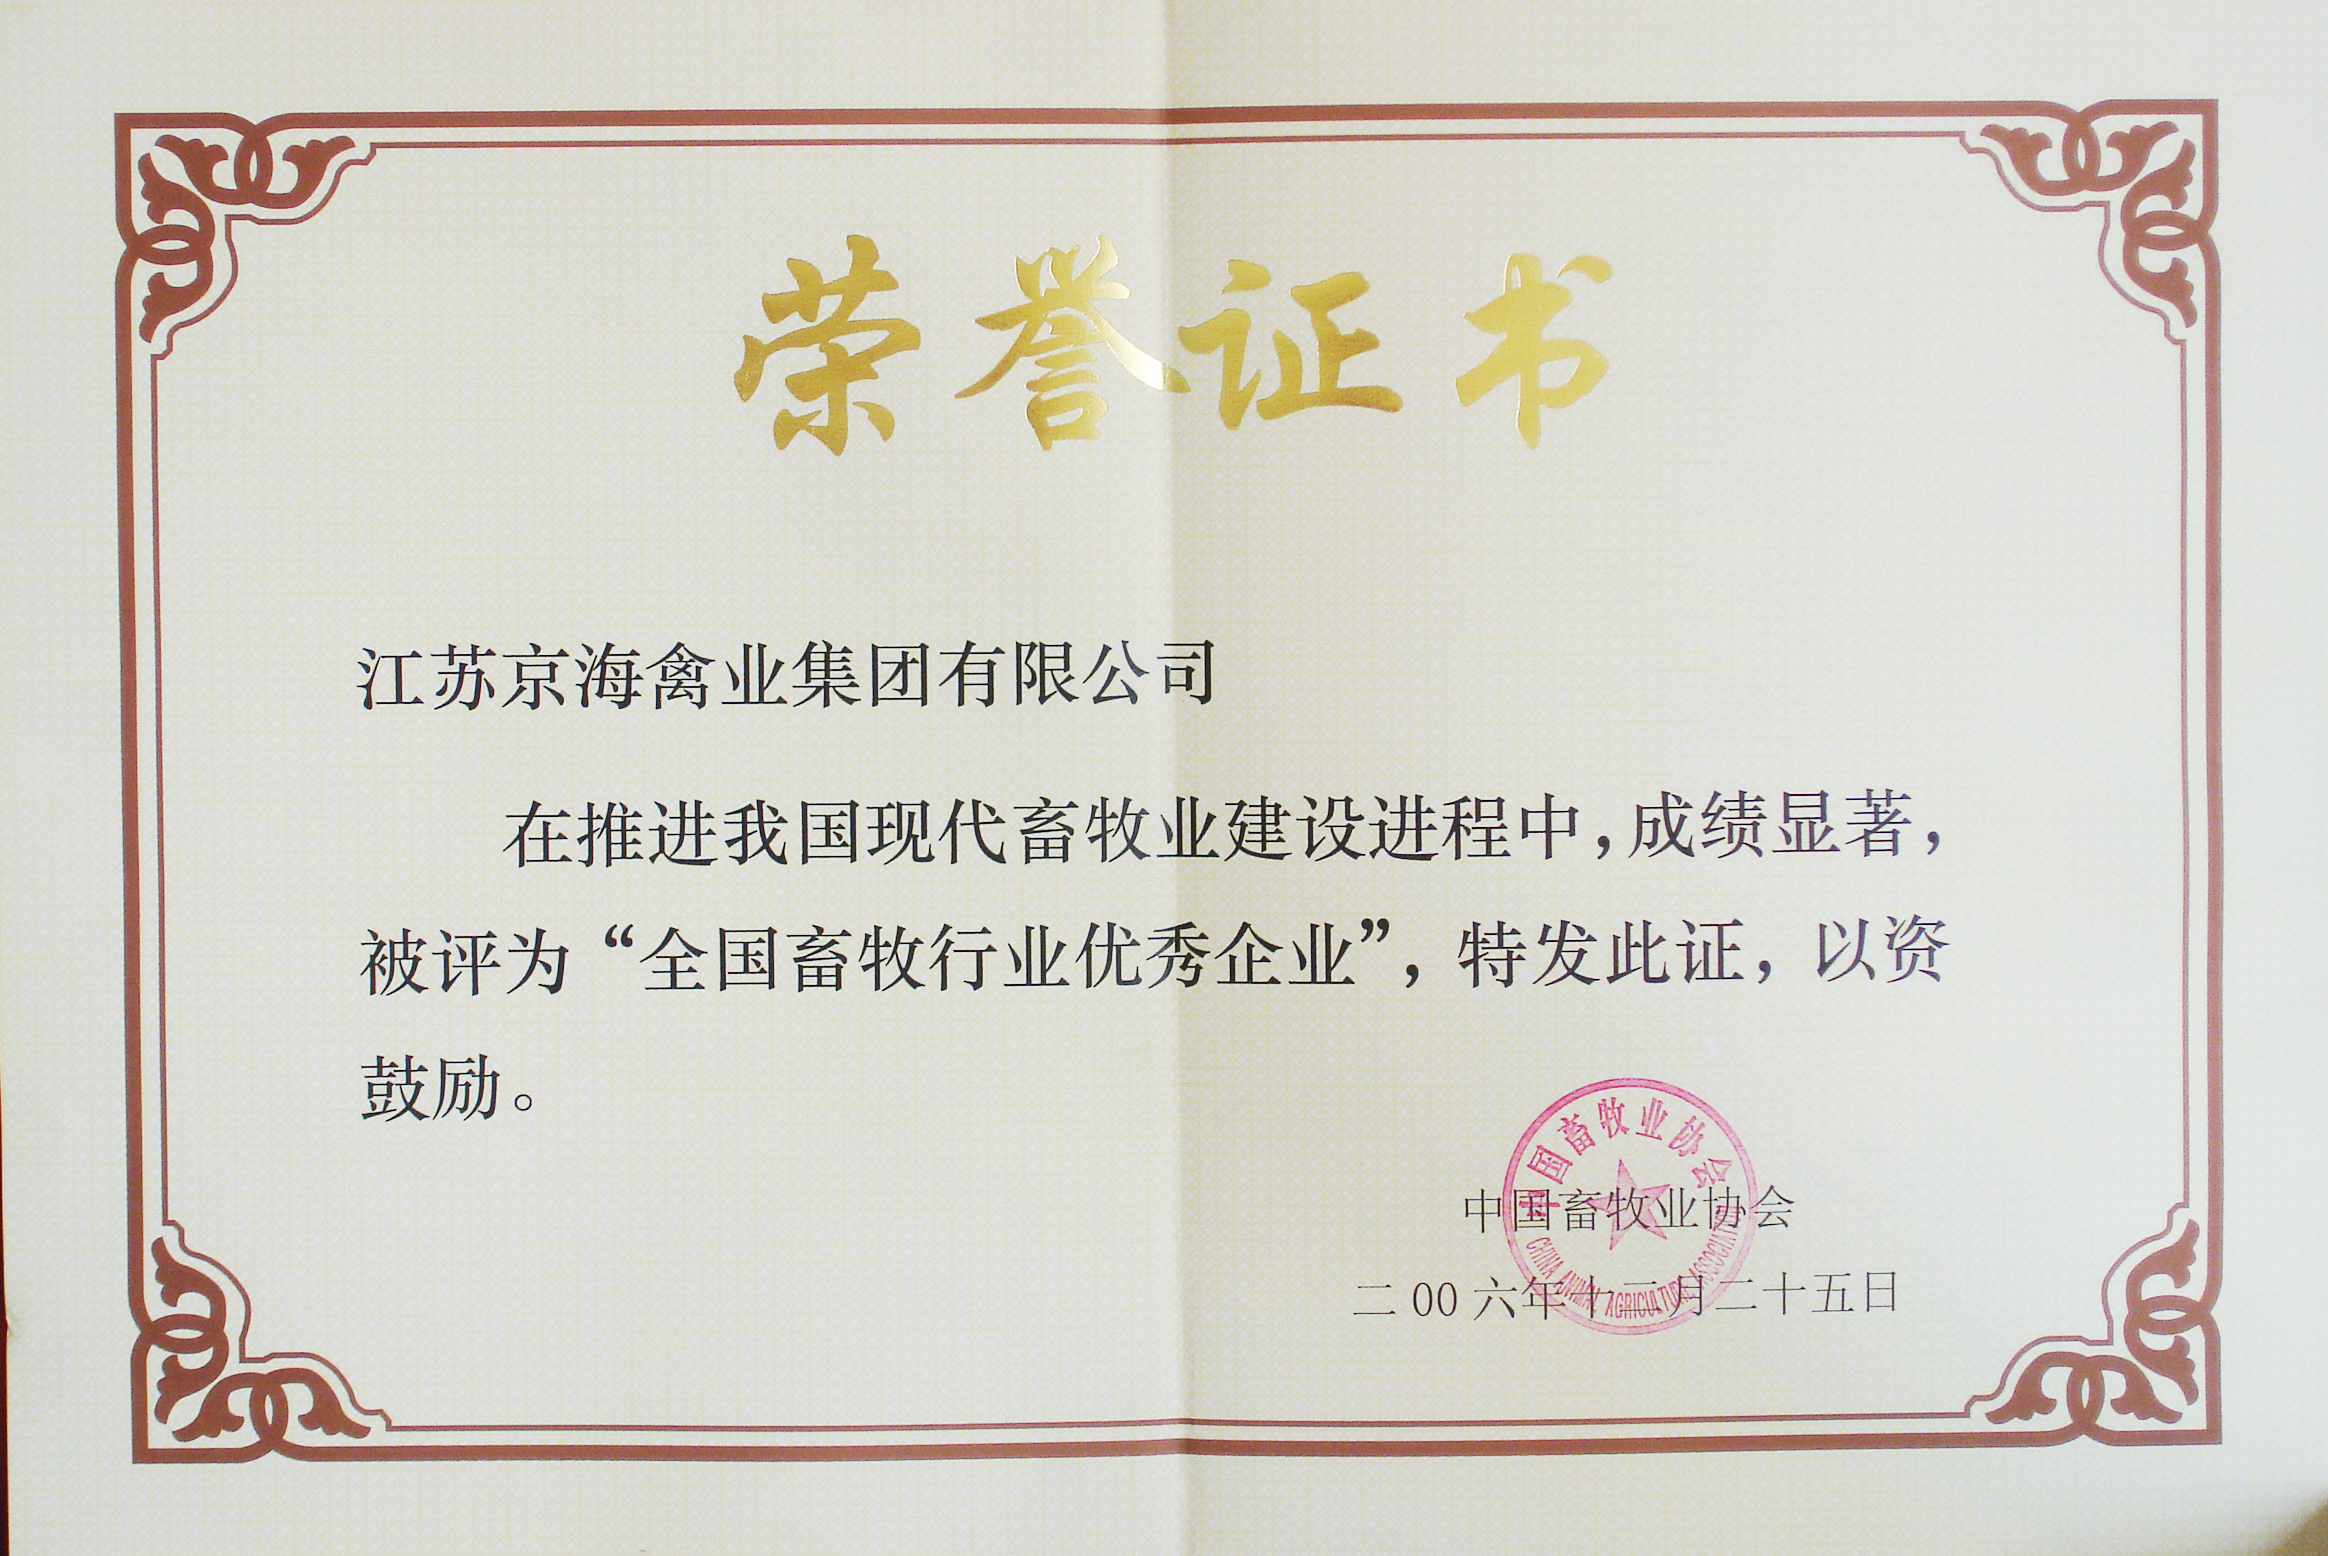 荣誉证书
江苏京海禽业集团有限公司
在推进我国现代畜牧业建设进程中,成绩显著,
被评为“全国畜牧行业优秀企业”,特发此证,以资
鼓励。
中国畜牧业协会
CHINA ANIMAL AGRICULTURE ASSOCIATION
中国畜牧业协会
二00六年十二月二十五日